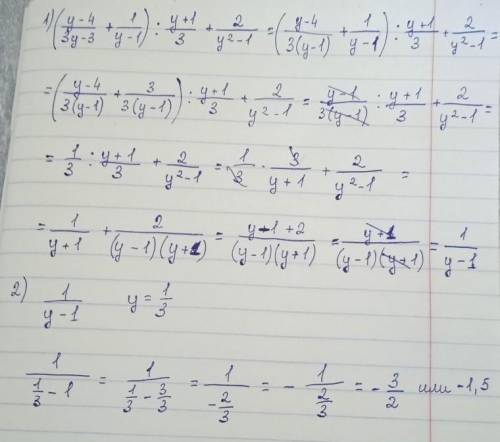 1) ((y-4)/(3y-3) + 1/(y-1)) : (y+1)/3 + 2/(y²-1) = ((y-4)/(3(y-1)) + 1/(y-1)) : (y+1)/3 + 2/(y²-1) =
= ((y-4)/(3(y-1)) + 3/(3(y-1))) : (y+1)/3 + 2/(y²-1) = (y-1)/(3(y-1)) : (y+1)/3 + 2/(y²-1) =
= 1/3 : (y+1)/3 + 2/(y²-1) = 1/3 · 3/(y+1) + 2/(y²-1) =
= 1/(y+1) + 2/((y-1)(y+1)) = (y-1+2)/((y-1)(y+1)) = (y+1)/((y-1)(y+1)) = 1/(y-1)
2) 1/(y-1) y = 1/3
1/(1/3 - 1) = 1/(1/3 - 3/3) = 1/(-2/3) = - 1/(2/3) = - 3/2 или -1,5